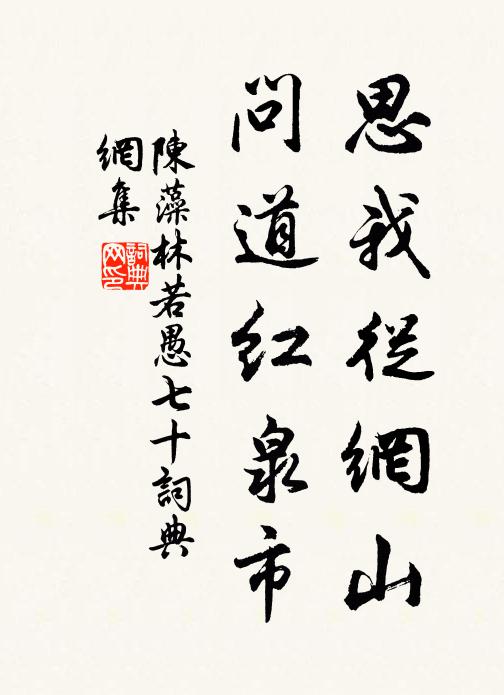 思我從網山
問道紅泉市
陳藻林若愚七十詞典
網集
詞典網印